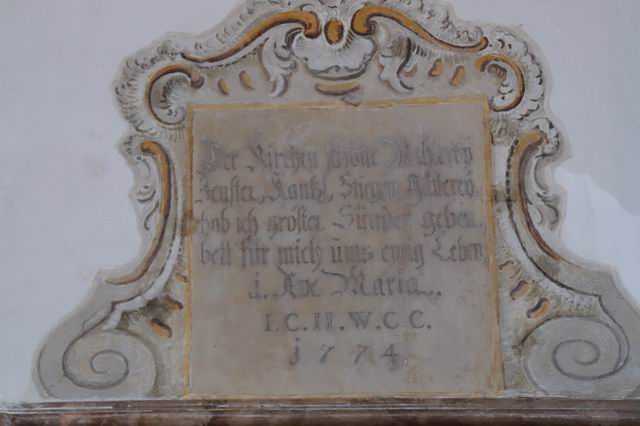 Der Kirchen schöne Mahlerey
Fenster, Kantzl, Stiegen Gätterey.
hab ich gröster Sünder geben.
bett für mich ums ewig Leben
1. Ave Maria.
I. C. H. W. C. C.
1774.